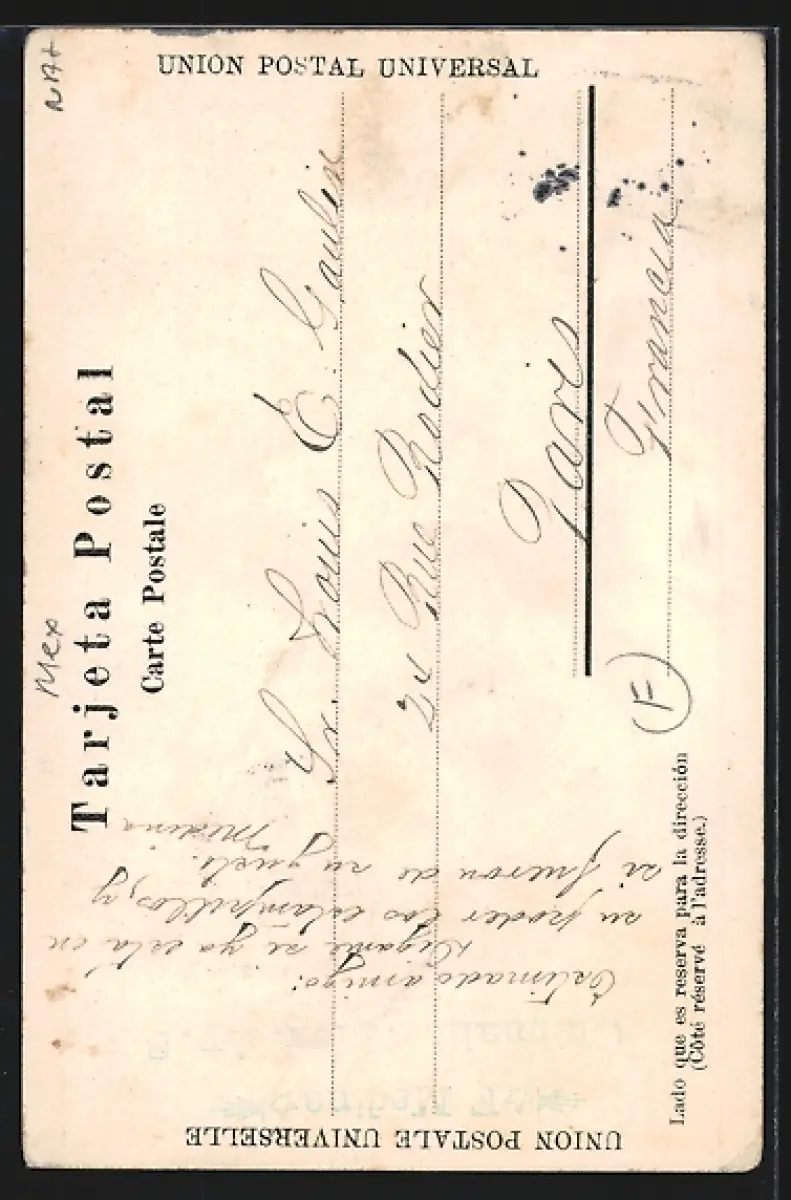 UNION POSTAL UNIVERSAL
Nat
Mex
Tarjeta Postal
Carte Postale
Sr. Louis E. Gaulin
21 Rue Rodier
Paris
Francia
F
Lado que es reserva para la dirección
(Côté réservé à l'adresse.)
Estimado amigo:
Digame si ya está en
su poder los estampillos, y
si fueron de su gusto.
Medina
UNION POSTALE UNIVERSELLE